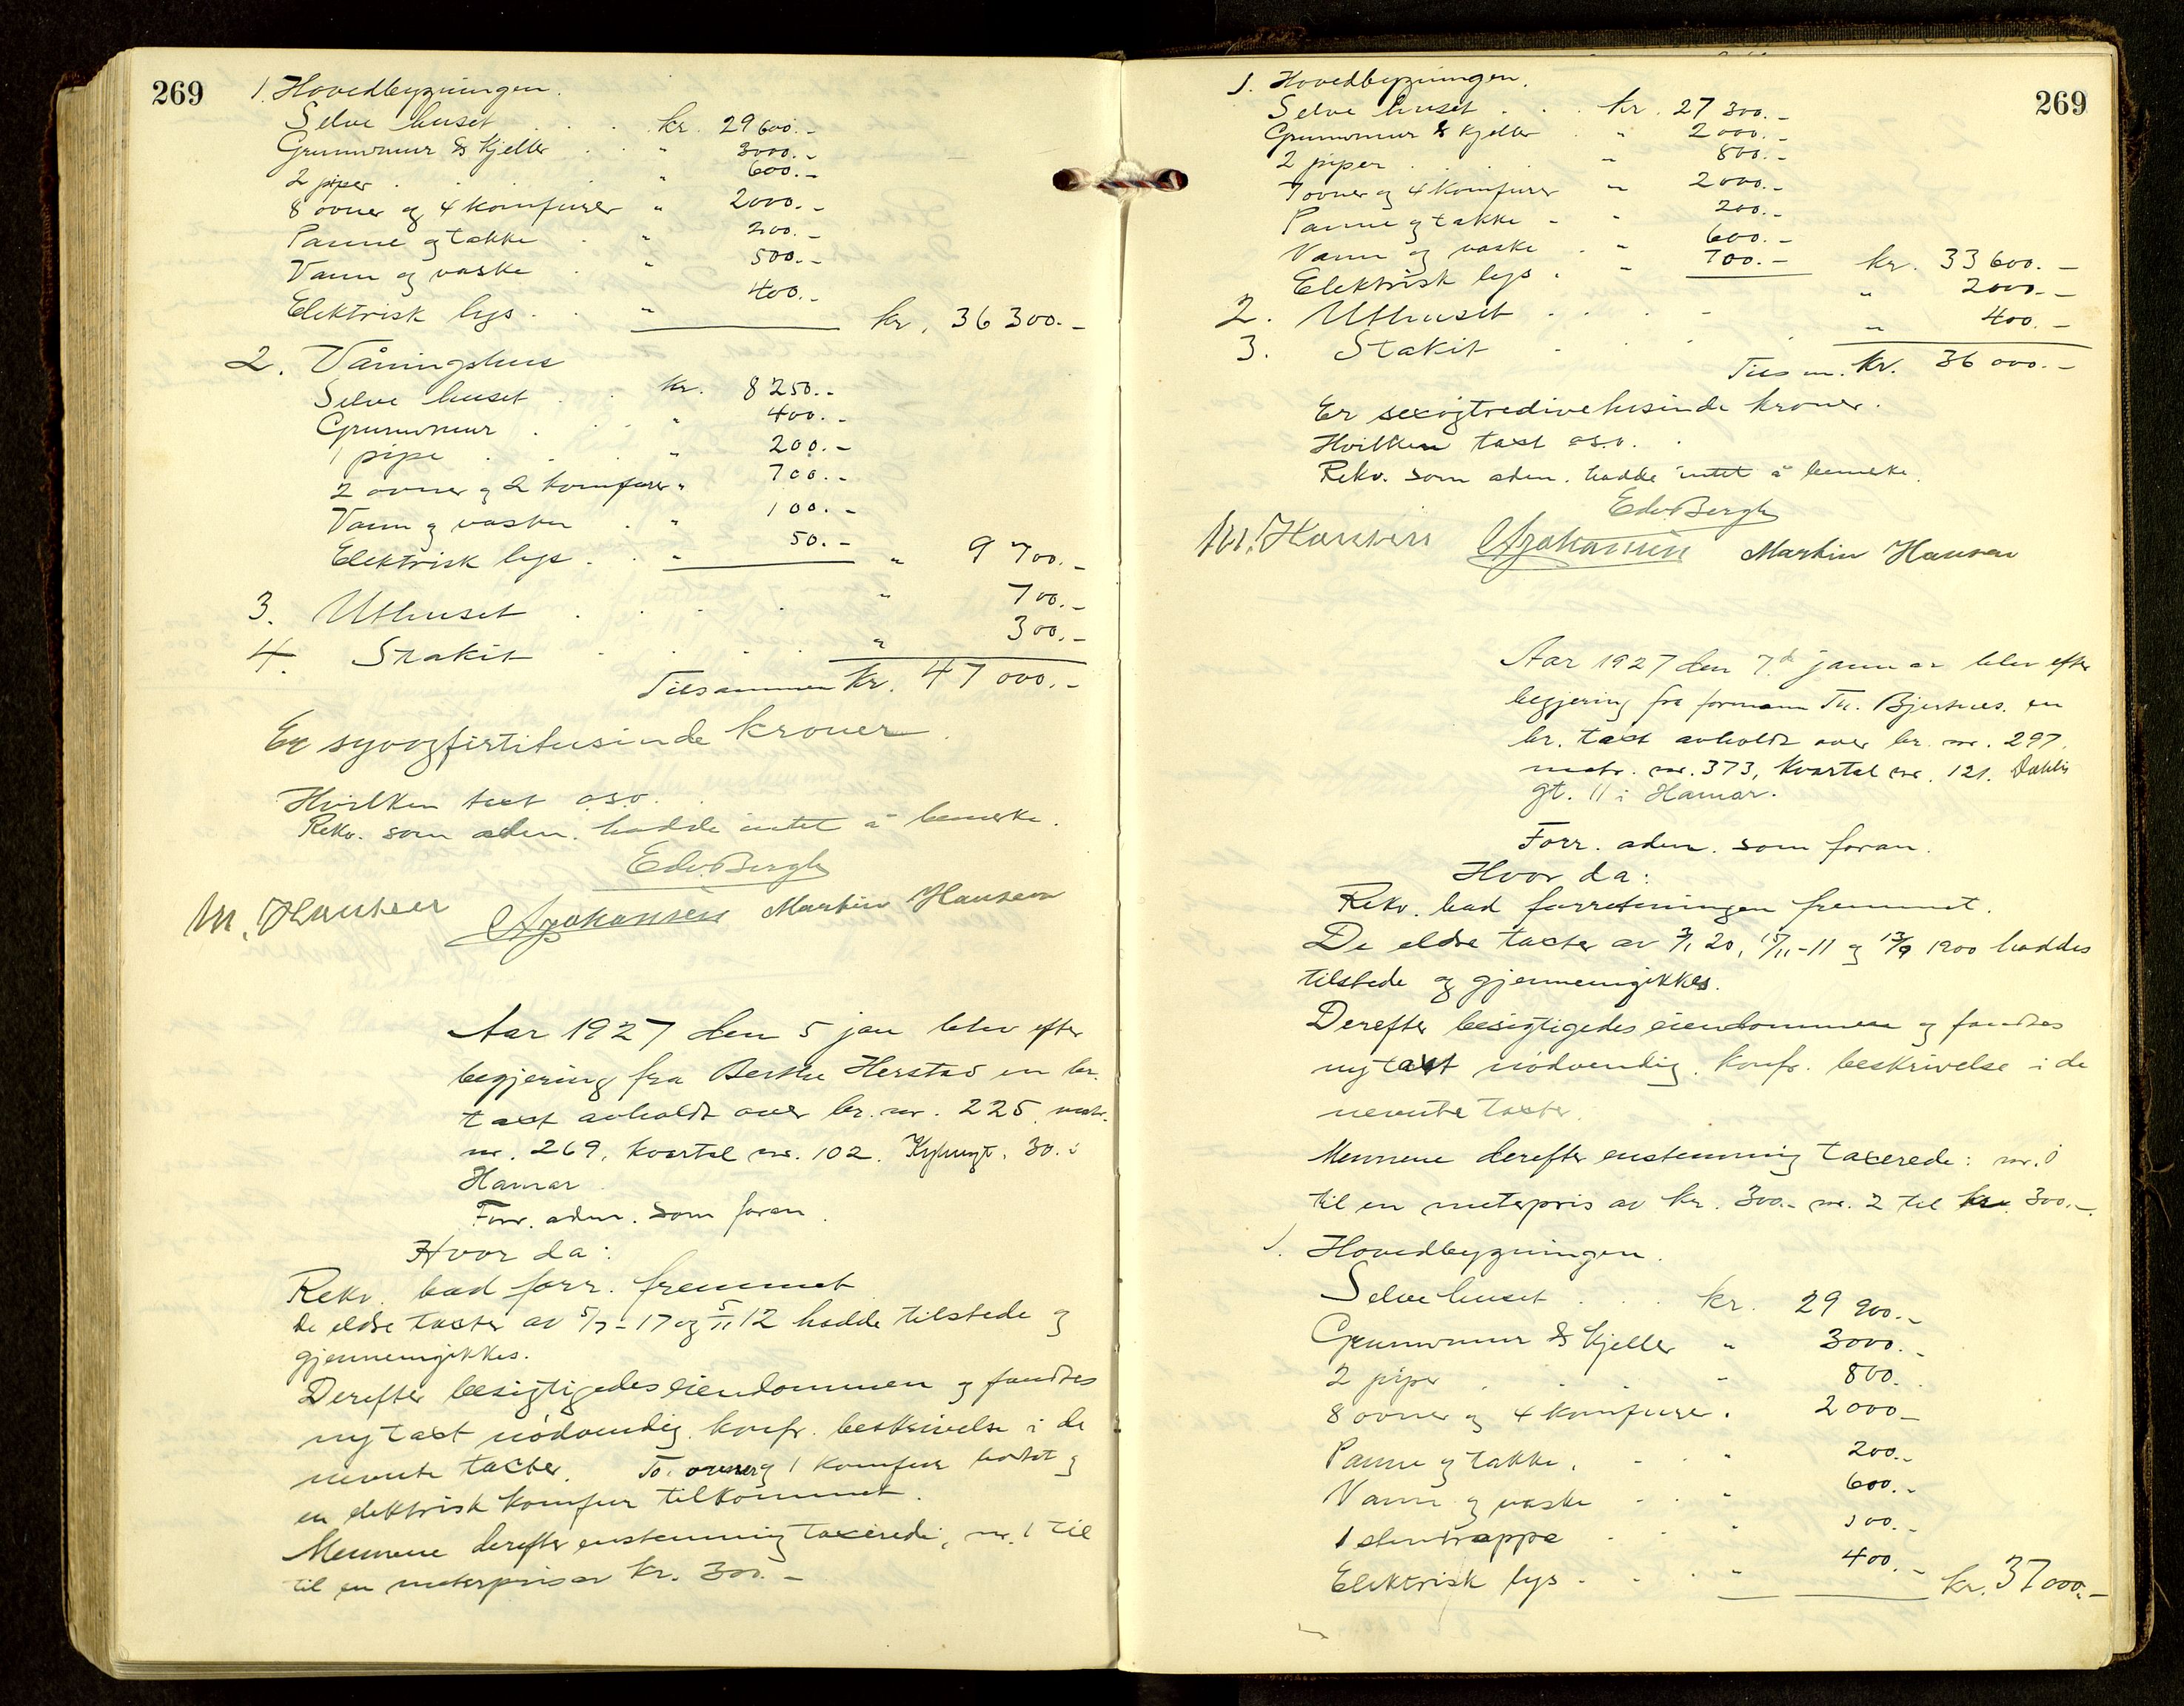 269
1. Hovedbygningen.
Selve huset . . . kr. 29 600.-
Grunnmur & kjeller . . " 3000.-
2 piper . . . " 600.-
8 ovner og 4 komfurer " 2000.-
Panne og takke . " 200.-
Vann og vaske . " 500.-
Elektrisk lys . . " 400.- kr. 36 300.-
2. Våningshus
Selve huset . . kr. 8 250.-
Grunnmur . . . " 400.-
1 pipe . . . " 200.-
2 ovner og 2 komfurer " 700.-
Vann og vasker . " 100.-
Elektrisk lys . . " 50.- " 9 700.-
3. Uthuset . . . . " 700.-
4. Stakit . . . . " 300.-
Tilsammen kr. 47 000.-
Er syvogfirtitusinde kroner.
Hvilken taxt o.s.v.
Rekv. som adm. hadde intet å bemerke.
Edv. Bergh
M. Hansen Johansen Martin Hansen
Aar 1927 den 5 jan blev efter
begjering fra Berthe Herstad en br.
taxt avholdt over br. nr. 225 matr.
nr. 269, kvartal nr. 102. 30 i
Hamar.
Forr. adm. som foran.
Hvor da:
Rekv. bad forr. fremmet
de eldre taxter av 5/7-17 og 5/11 12 hadde tilstede og
gjennemgikkes.
Derefter besigtigedes eiendommen og fandtes
ny taxt nødvendig. konfr. beskrivelse i de
nevnte taxter. To ovner og 1 komfur og
en elektrisk komfur tilkommet.
Mennene derefter enstemmig taxerede, nr. 1 til
til en meterpris av kr. 300.-
269
1. Hovedbygningen.
Selve huset . . . kr. 27 300.-
Grunnmur & kjeller . " 2000.-
2 piper . . . " 800.-
7 ovner og 4 komfurer " 2000.-
Panne og takke - " 200.-
Vann og vaske . " 600.-
Elektrisk lys . " 700.- kr. 33 600.-
2. Uthuset . . . - " 2000.-
3. Stakit - . . . " 400.-
Tilsm. kr. 36 000.-
Er sexogtredivetusinde kroner.
Hvilken taxt o.s.v.
Rekv. som adm. hadde intet å bemerke.
Edv. Bergh
M. Hansen Johansen Martin Hansen
Aar 1927 den 7de januar blev efter
begjering fra formann Th. Bjertnes. en
br. taxt avholdt over br. nr. 297,
matr. nr. 373, kvartal nr. 121. Dahls
gt. 11 i Hamar.
Forr. adm. som foran.
Hvor da:
Rekv. bad forretningen fremmet.
De eldre taxter av 3/1 20, 15/11-11 og 13/9 1900 haddes
tilstede og gjennemgikkes.
Derefter besigtigedes eiendommen og fandtes
ny taxt nødvendig. konfr. beskrivelse i de
nevnte taxter.
Mennene derefter enstemmig taxerede: nr. 1
til en meterpris av kr. 300.- nr. 2 til kr. 300.-.
1. Hovedbygningen.
Selve huset . . . kr. 29 900.-
Grunnmur & kjeller " 3000.-
2 piper . . . " 800.
8 ovner og 4 komfurer . 2000-
Panne og takke . - " 200.-
Vann og vaske - . " 600.-
1 stentrappe . - " 100.-
Elektrisk lys - . . " 400.- kr. 37 000.-